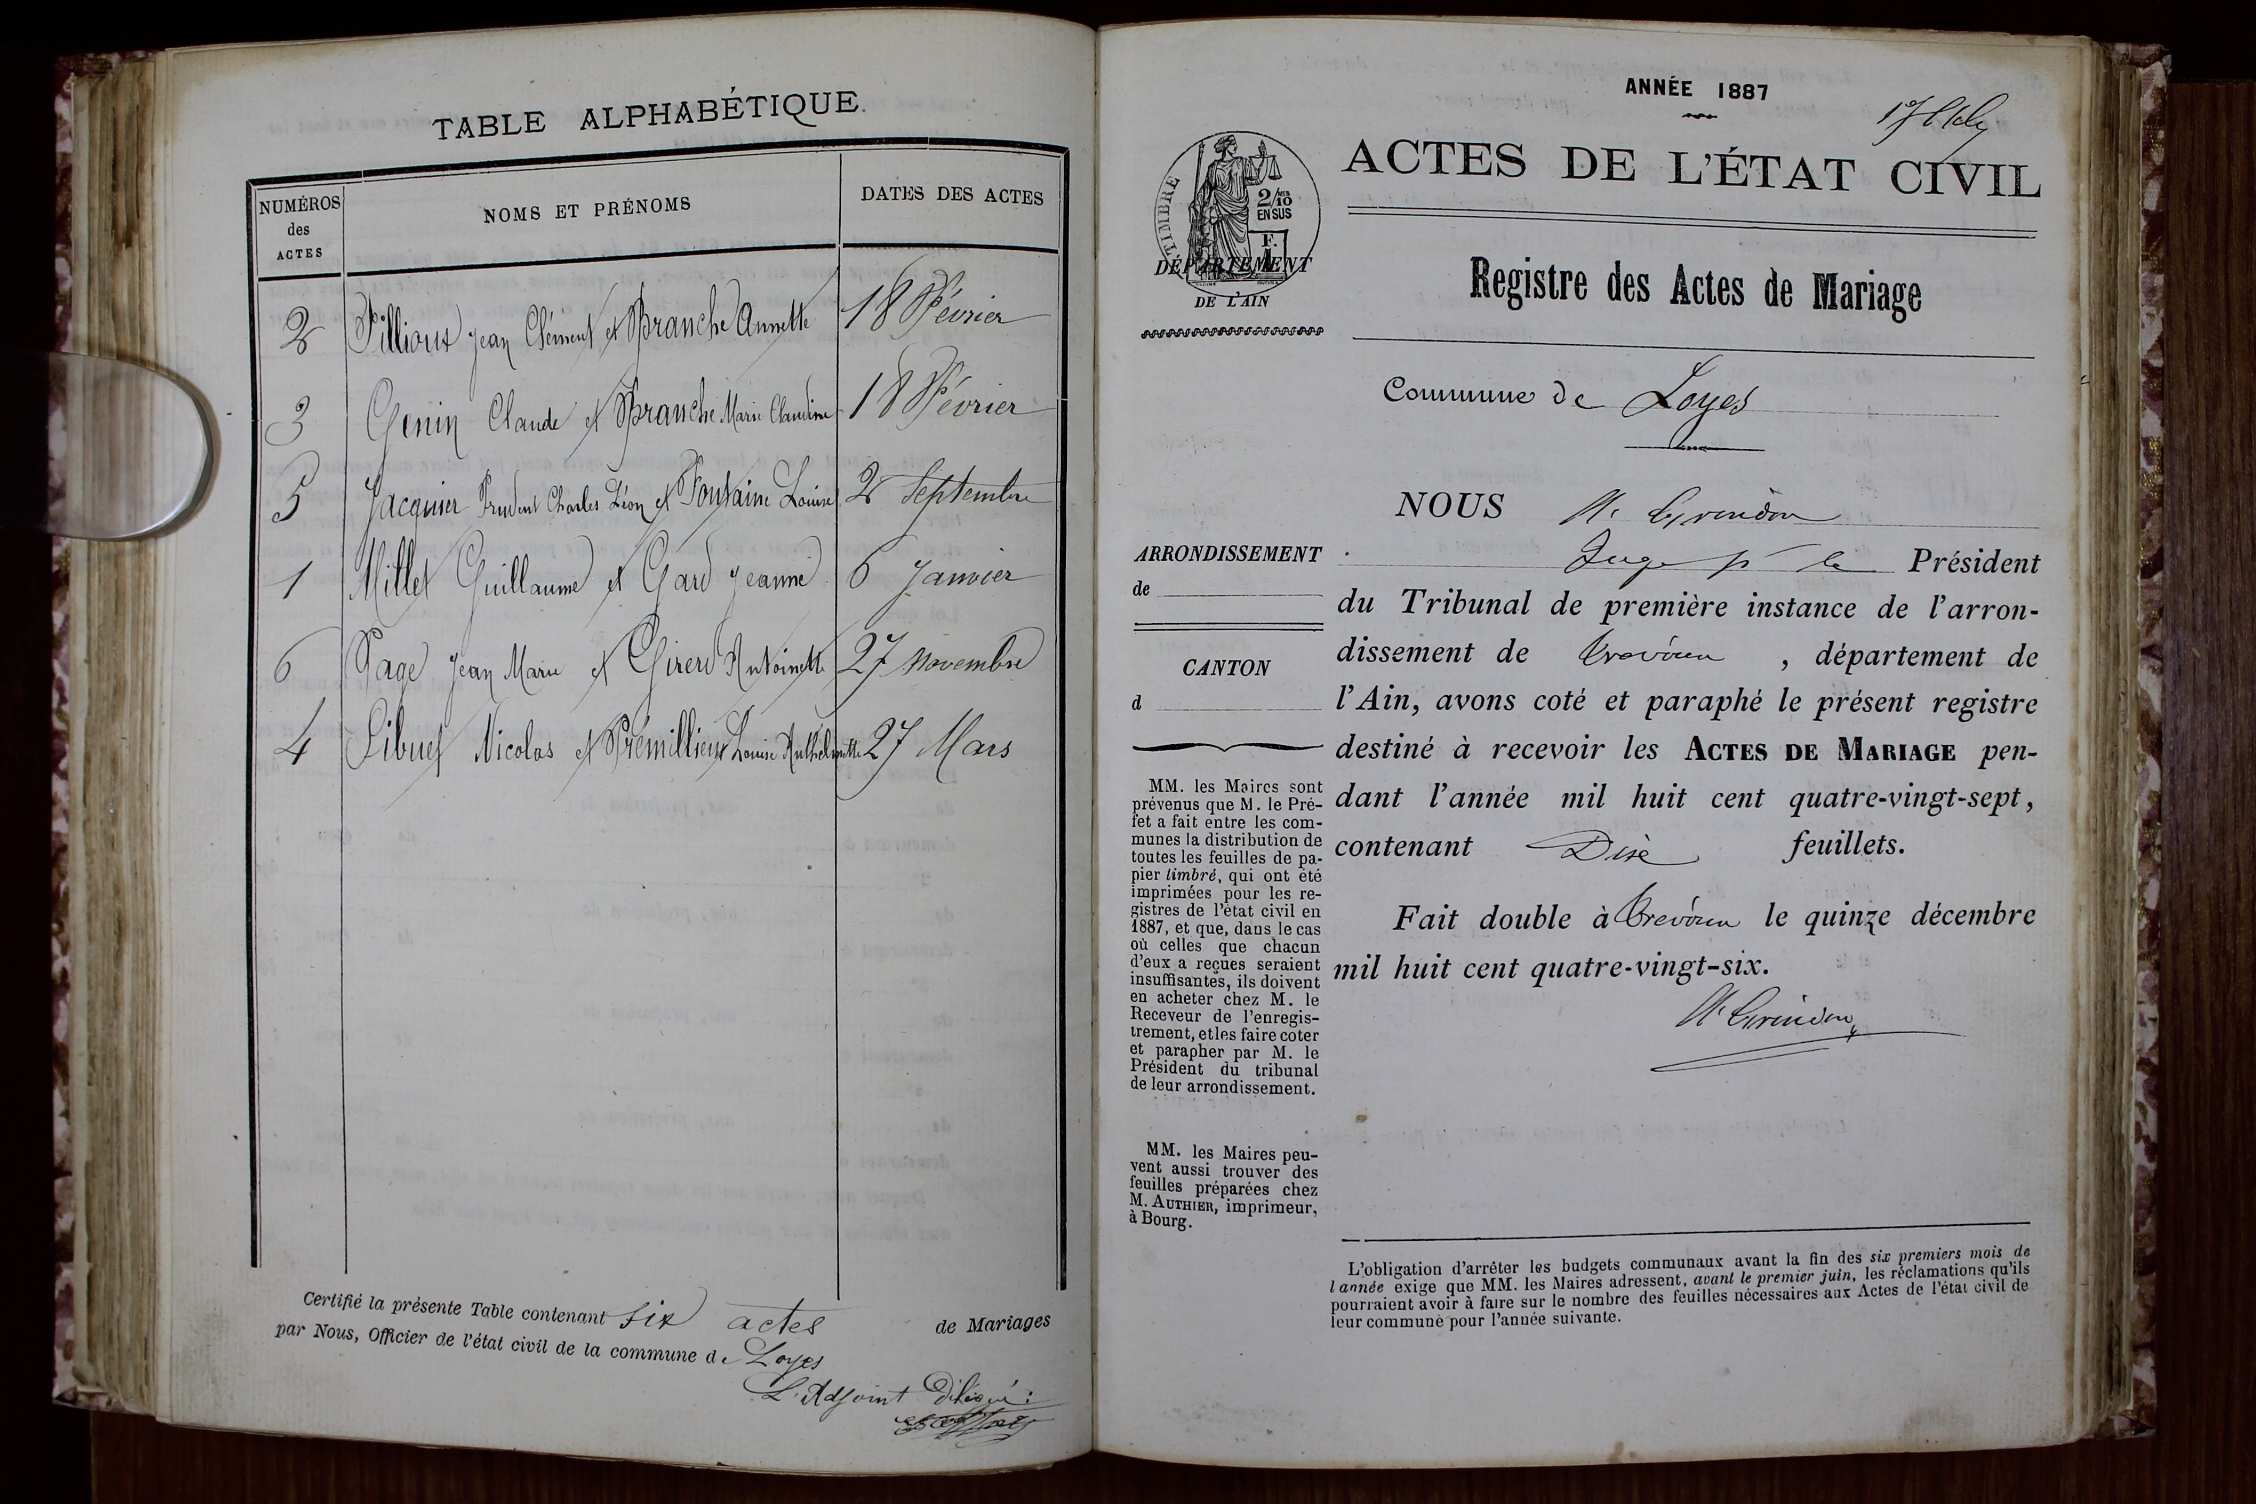 TABLE ALPHABÉTIQUE.
NUMÉROS
des
ACTES
NOMS ET PRÉNOMS
DATES DES ACTES
2 Fillioux Jean Clément et Branche Annette 18 Février
3 Genin Claude et Branche Marie Claudine 18 Février
5 Jacquier Prudent Charles Léon et Fontaine Louise 2 Septembre
1 Millet Guillaume et Gard Jeanne 6 Janvier
6 Page Jean Marie et Girerd Antoinette 27 Novembre
4 Nicolas et Prémillieux Louise Anthelmette 27 Mars
Certifié la présente Table contenant six actes de Mariages
par Nous, Officier de l'état civil de la commune de Loyes
L'Adjoint délégué :
ANNÉE 1887
ACTES DE L'ÉTAT CIVIL
TIMBRE
2/10
EN SUS
F.
1
DÉPARTEMENT
DE L'AIN
Registre des Actes de Mariage
Commune de Loyes
NOUS
Juge pr le Président
du Tribunal de première instance de l'arron-
dissement de Trévoux, département de
l'Ain, avons coté et paraphé le présent registre
destiné à recevoir les ACTES DE MARIAGE pen-
dant l'année mil huit cent quatre-vingt-sept,
contenant Dix feuillets.
Fait double à Trévoux le quinze décembre
mil huit cent quatre-vingt-six.
ARRONDISSEMENT
de
CANTON
d
MM. les Maires sont
prévenus que M. le Pré-
fet a fait entre les com-
munes la distribution de
toutes les feuilles de pa-
pier timbré, qui ont été
imprimées pour les re-
gistres de l'état civil en
1887, et que, dans le cas
où celles que chacun
d'eux a reçues seraient
insuffisantes, ils doivent
en acheter chez M. le
Receveur de l'enregis-
trement, et les faire coter
et parapher par M. le
Président du tribunal
de leur arrondissement.
MM. les Maires peu-
vent aussi trouver des
feuilles préparées chez
M. AUTHIER, imprimeur,
à Bourg.
L'obligation d'arrêter les budgets communaux avant la fin des six premiers mois de
l'année exige que MM. les Maires adressent, avant le premier juin, les réclamations qu'ils
pourraient avoir à faire sur le nombre des feuilles nécessaires aux Actes de l'état civil de
leur commune pour l'année suivante.